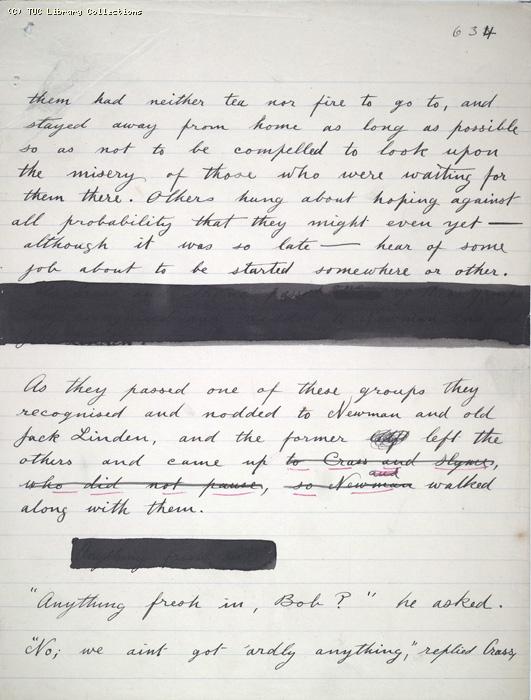 (C) TUC Library Collections
634
them had neither tea nor fire to go to, and
stayed away from home as long as possible
so as not to be compelled to look upon
the misery of those who were waiting for
them there. Others hung about hoping against
all probability that they might even yet —
although it was so late — hear of some
job about to be started somewhere or other.
As they passed one of these groups they
recognised and nodded to Newman and old
Jack Linden, and the former left the
others and came up to Crass and Slyme,
who did not pause, so Newman and walked
along with them.
"Anything fresh in, Bob?" he asked.
"No; we aint got 'ardly anything," replied Crass,